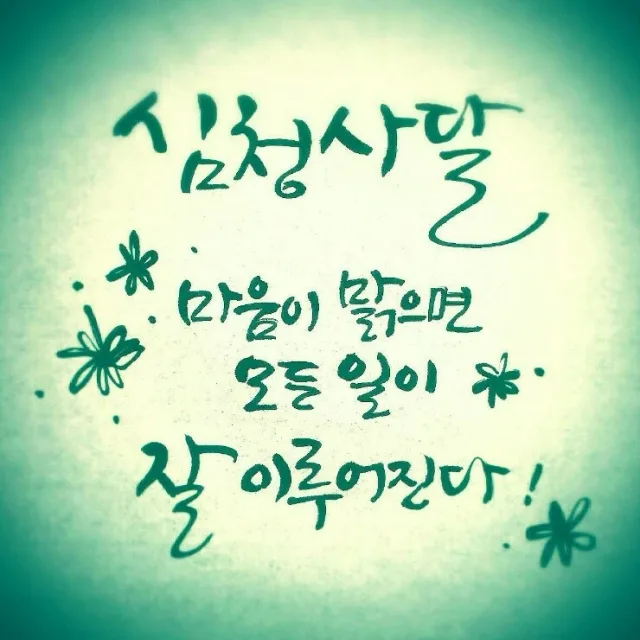 심청사달
마음이 맑으면
모든 일이
잘 이루어진다!